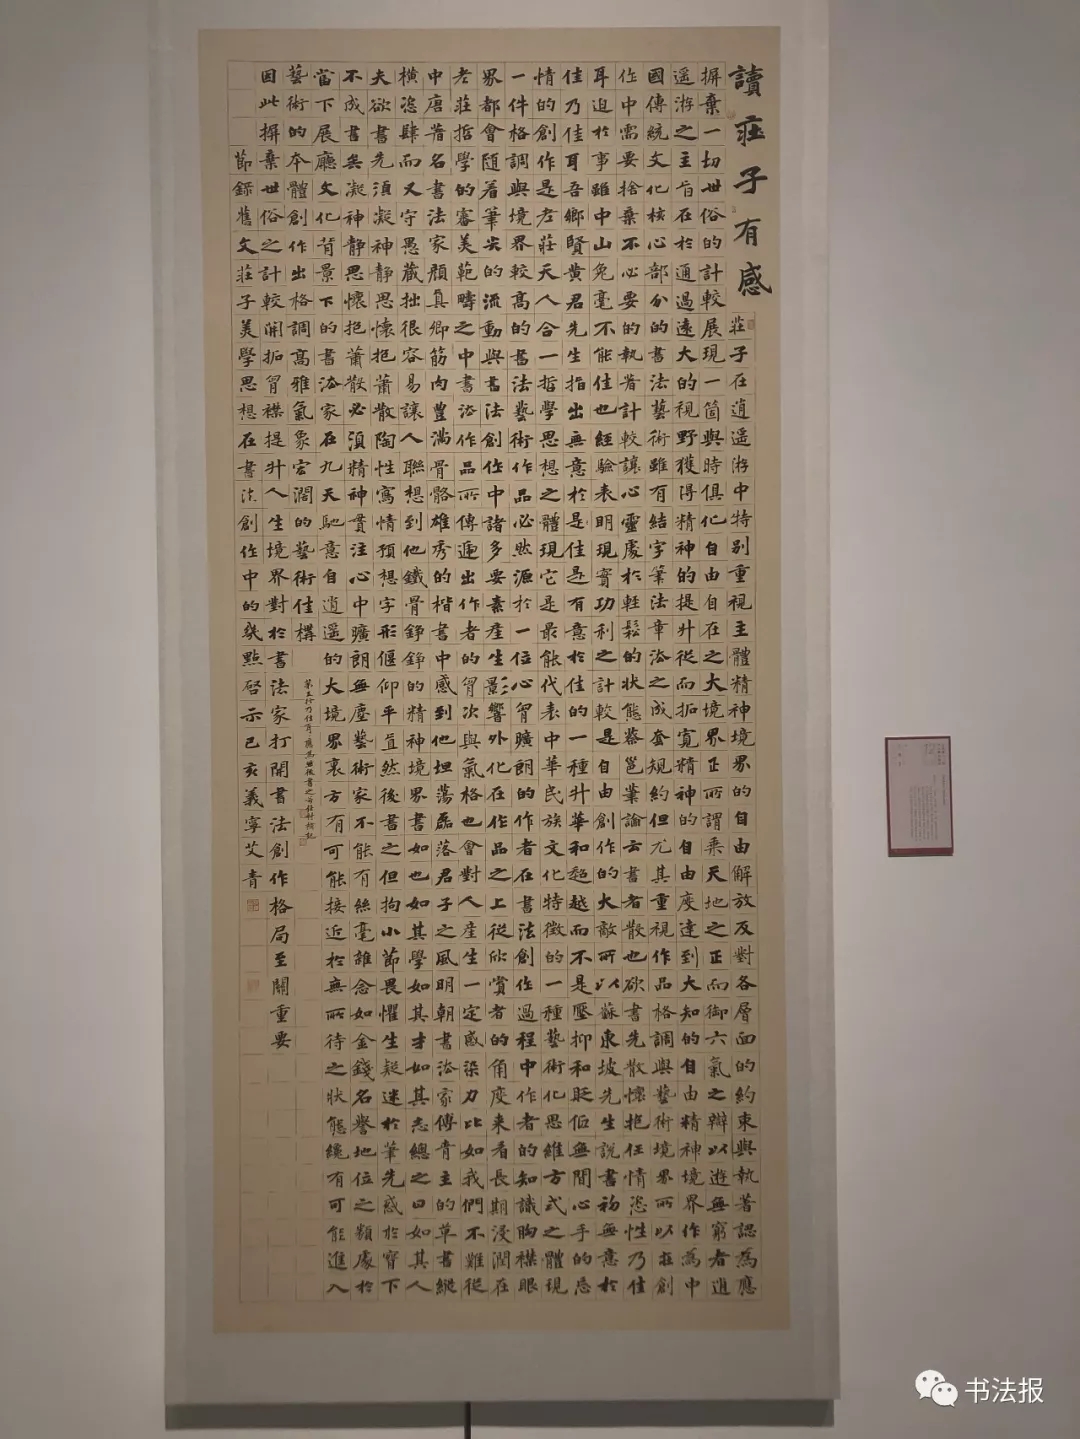 讀莊子有感
莊子在逍遥游中特别重視主體精神境界的自由解放反對各層面的約束與執著認為應
摒棄一切世俗的計較展現一箇與時俱化自由自在之大境界正所謂乘天地之正而御六氣之辯以遊無窮者逍
遥游之主旨在於通過遠大的視野獲得精神的提升從而拓寬精神的自由度達到大知的自由精神境界作為中
國傳統文化核心部分的書法藝術雖有結字筆法章法之成套規約但尤其重視作品格調與藝術境界所以在創
作中需要捨棄不必要的執著計較讓心靈處於輕鬆的狀態蔡邕筆論云書者散也欲書先散懷抱任情恣性乃佳
耳迫於事雖中山兔毫不能佳也經驗表明現實功利之計較是自由創作的大敵所以蘇東坡先生說書初無意於
佳乃佳耳吾鄉賢黄君先生指出無意於是佳是有意於佳的一種升華和超越而不是壓抑和貶低無間心手的忘
情的創作是老莊天人合一哲學思想之體現它是最能代表中華民族文化特徵的一種藝術化思維方式之體現
一件格調與境界較高的書法藝術作品必然源於一位心胷曠朗的作者在書法創作過程中作者的知識胸襟眼
界都會隨着筆尖的流動與書法創作中諸多要素産生影響外化在作品之上從欣賞者的角度來看長期浸潤在
老莊哲學的審美範疇之中書法作品所傳遞出作者的胷次與氣格也會對人産生一定感染力比如我們不難從
中唐著名書法家顔真卿筋肉豐滿骨骼雄秀的楷書中感到他坦蕩磊落君子之風明朝書法家傅青主的草書縱
横恣肆而又守愚藏拙很容易讓人聯想到他鐵骨錚錚的精神境界書如也如其學如其才如其志總之曰如其人
夫欲書先須凝神静思懷抱蕭散陶性寫情預想字形偃仰平直然後書之但拘小節畏懼生疑迷於筆先惑於腕下
不成書矣凝神静思懷抱蕭散必須精神貫注心中曠朗無塵藝術家不能有絲毫雜念如金錢名譽地位之類處於
當下展廳文化背景下的書法家在九天馳意自逍遥的大境界裏方有可能接近於無所待之狀態纔有可能進入
藝術的本體創作出格調高雅氣象宏濶的藝術佳構
因此摒棄世俗之計較開拓胷襟提升人生境界對於書法家打開書法創作格局至關重要
節録舊文莊子美學思想在書法創作中的幾點啓示己亥義寧艾青
书法报